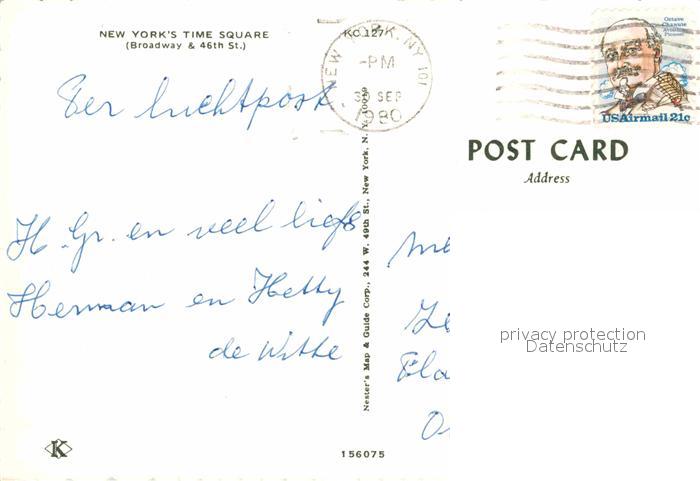 NEW YORK'S TIME SQUARE
(Broadway & 46th St.)
KC 127
NEW YORK, NY 101
-PM
SEP
1980
Octave
Chanute
Aviation
Pioneer
USAirmail 21c
Per luchtpost.
POST CARD
Address
H. Gr. en veel liefs
Herman en Hetty
de Witte
Nester's Map & Guide Corp., 244 W. 49th St., New York, N. Y. 10019
privacy protection
Datenschutz
K
156075